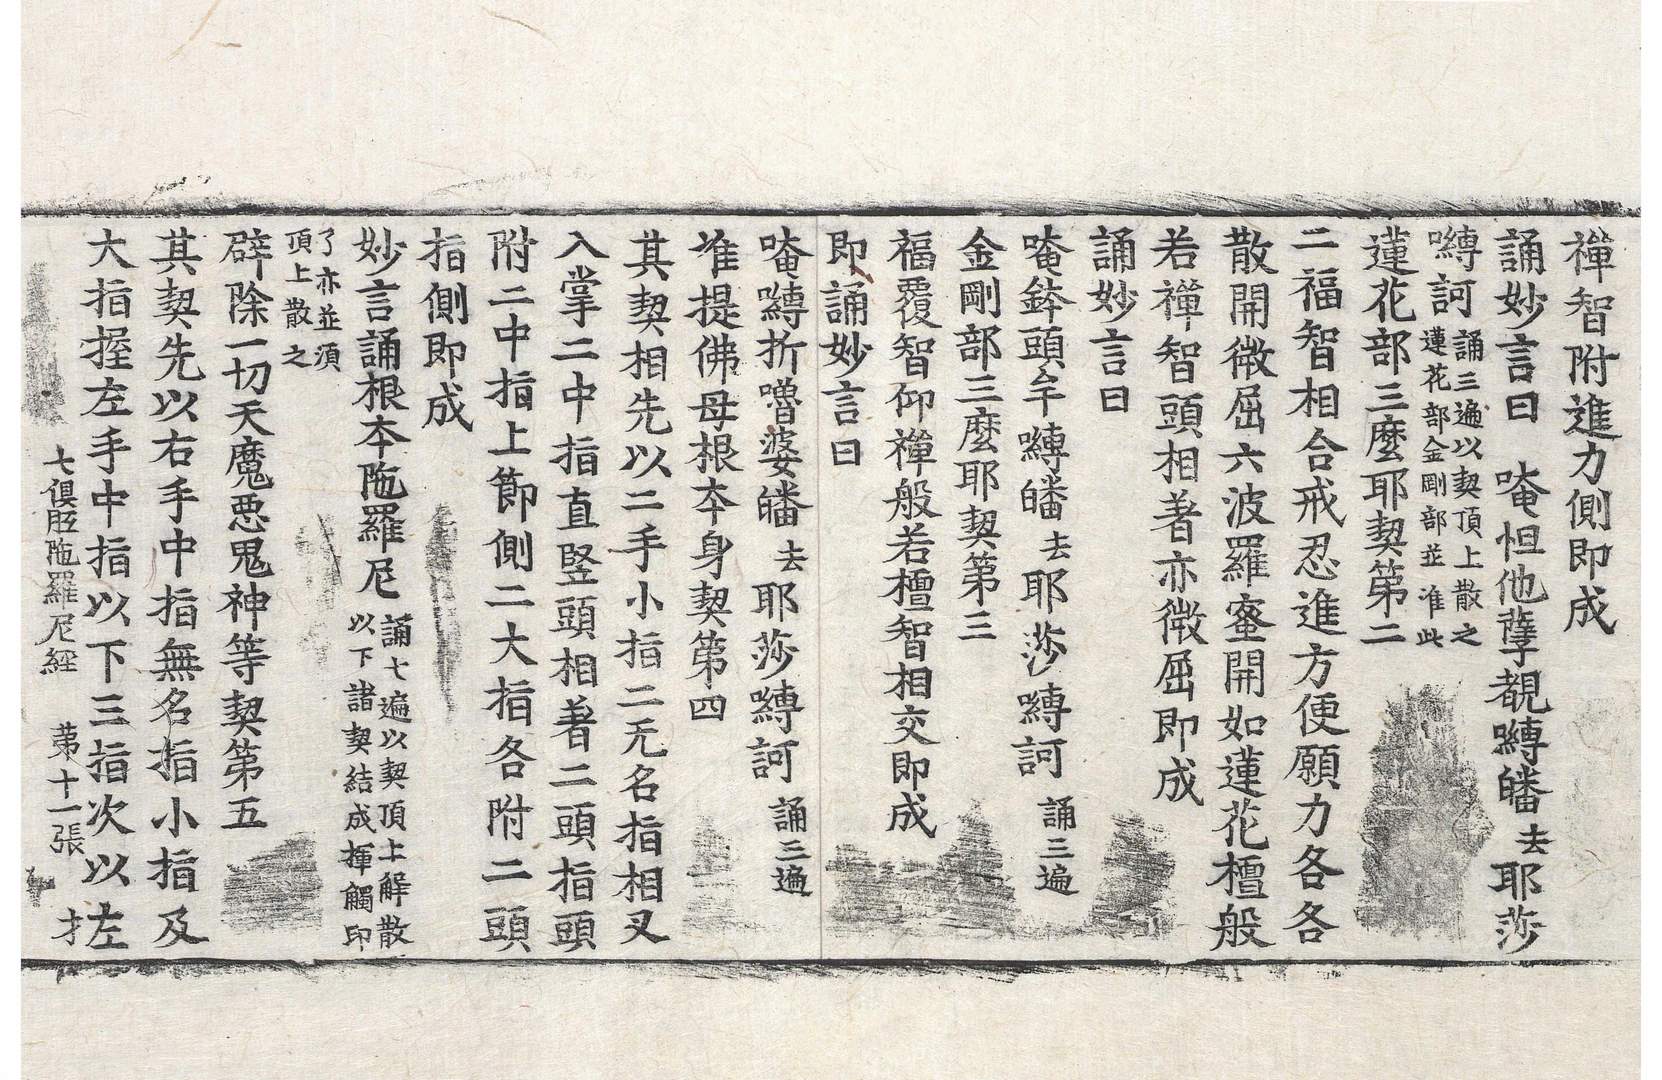 禪智附進力側即成
誦妙言曰　唵怛他孽覩嚩皤去耶莎
嚩訶誦三遍以契頂上散之
蓮花部金剛部並准此
蓮花部三麼耶契第二
二福智相合戒忍進方便願力各各
散開微屈六波羅蜜開如蓮花檀般
若禪智頭相著亦微屈即成
誦妙言曰
唵鉢頭牟嚩皤去耶莎嚩訶誦三遍
金剛部三麼耶契第三
福覆智仰禪般若檀智相交即成
即誦妙言曰
唵嚩折嚕婆皤去耶莎嚩訶誦三遍
准提佛母根本身契第四
其契相先以二手小指二无名指相叉
入掌二中指直竪頭相著二頭指頭
附二中指上節側二大指各附二頭
指側即成
妙言誦根本陁羅尼誦七遍以契頂上解散
以下諸契結成揮觸印
了亦並須
頂上散之
辟除一切天魔惡鬼神等契第五
其契先以右手中指無名指小指及
大指握左手中指以下三指次以左
七俱胝陁羅尼經　第十一張　才